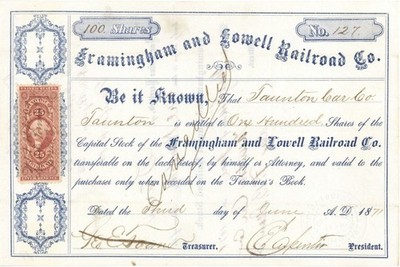 100 Shares
No. 127.
Framingham and Lowell Railroad Co.
Be it Known, That Taunton Car Co.
Taunton is entitled to One Hundred Shares of the
Capital Stock of the Framingham and Lowell Railroad Co.
transferable on the back hereof, by himself or Attorney, and valid to the
purchaser only when recorded on the Treasurer's Book.
Dated the Third day of June A.D. 1871
Treasurer.
President.
Cancelled
25